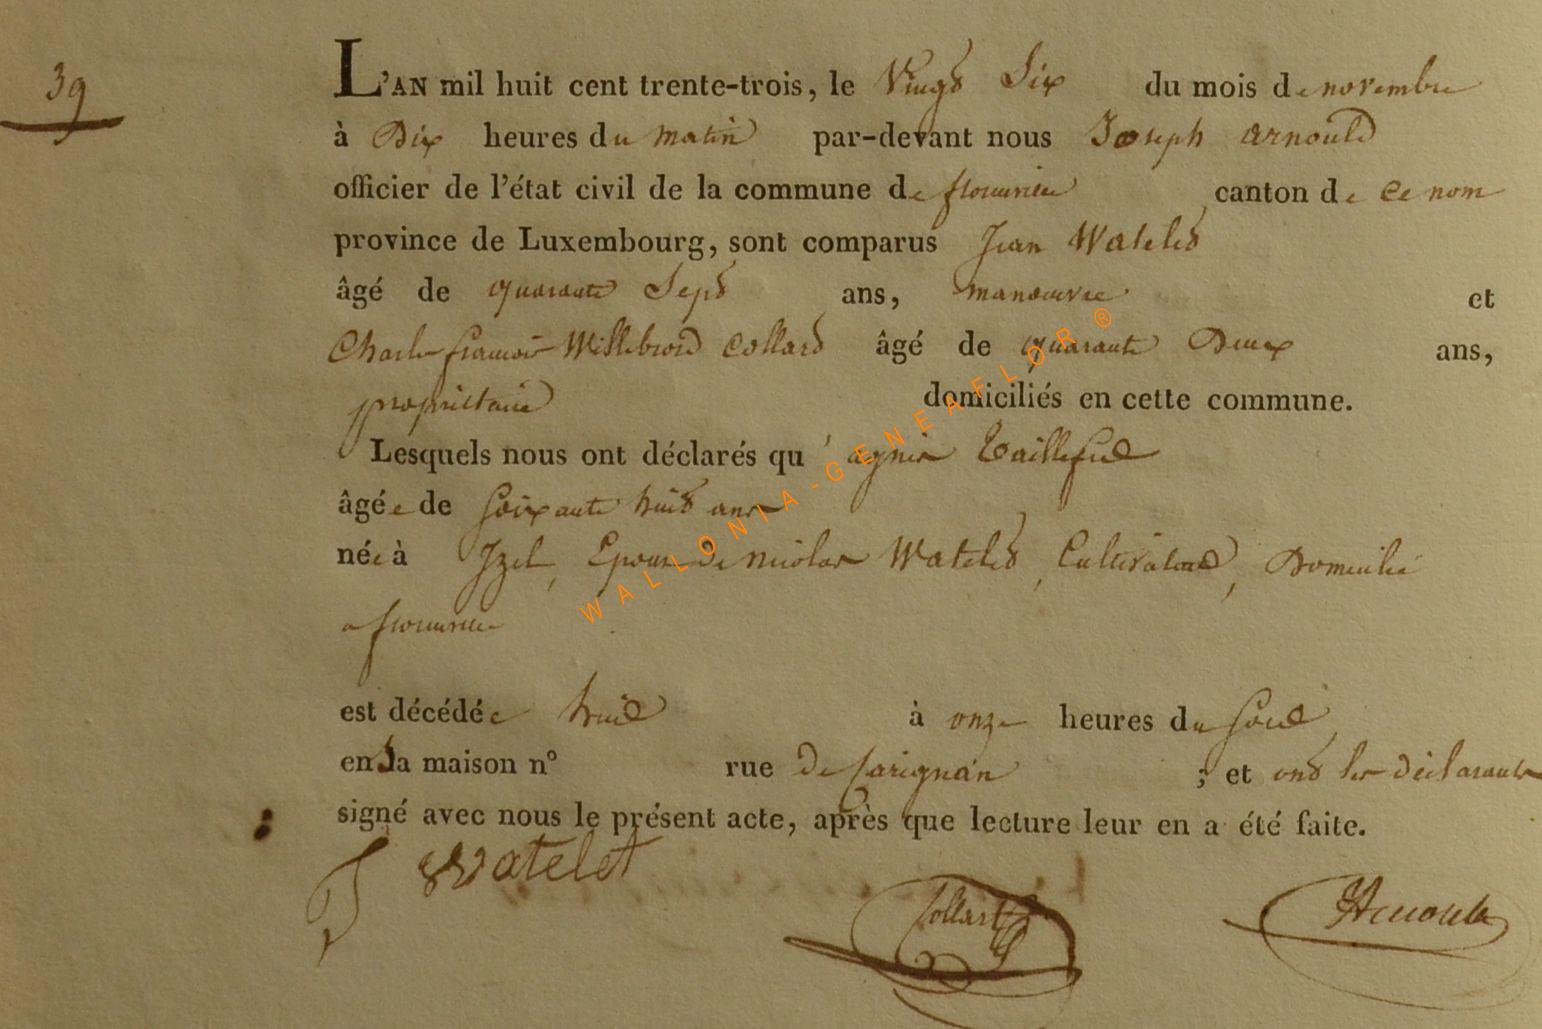 39
L'AN mil huit cent trente-trois, le Vingt Six du mois de novembre
à Dix heures du matin par-devant nous Joseph arnould
officier de l'état civil de la commune de florenville canton de ce nom
province de Luxembourg, sont comparus Jean Watelet
âgé de quarante Sept ans, manœuvre et
Charles françois Willibrord Collard âgé de quarante Deux ans,
propriétaire domiciliés en cette commune.
Lesquels nous ont déclarés qu'agnès taillefer
âgée de Soixante huit ans
née à Izel, Epouse de nicolas Watelet, Cultivateur, Domicilié
a florenville
est décédée hier à onze heures du soir
en sa maison n° rue de Carignan ; et ont les déclarants
signé avec nous le présent acte, après que lecture leur en a été faite.
J Watelet Collard Arnould
WALLONIA-GENEAFLOR ®